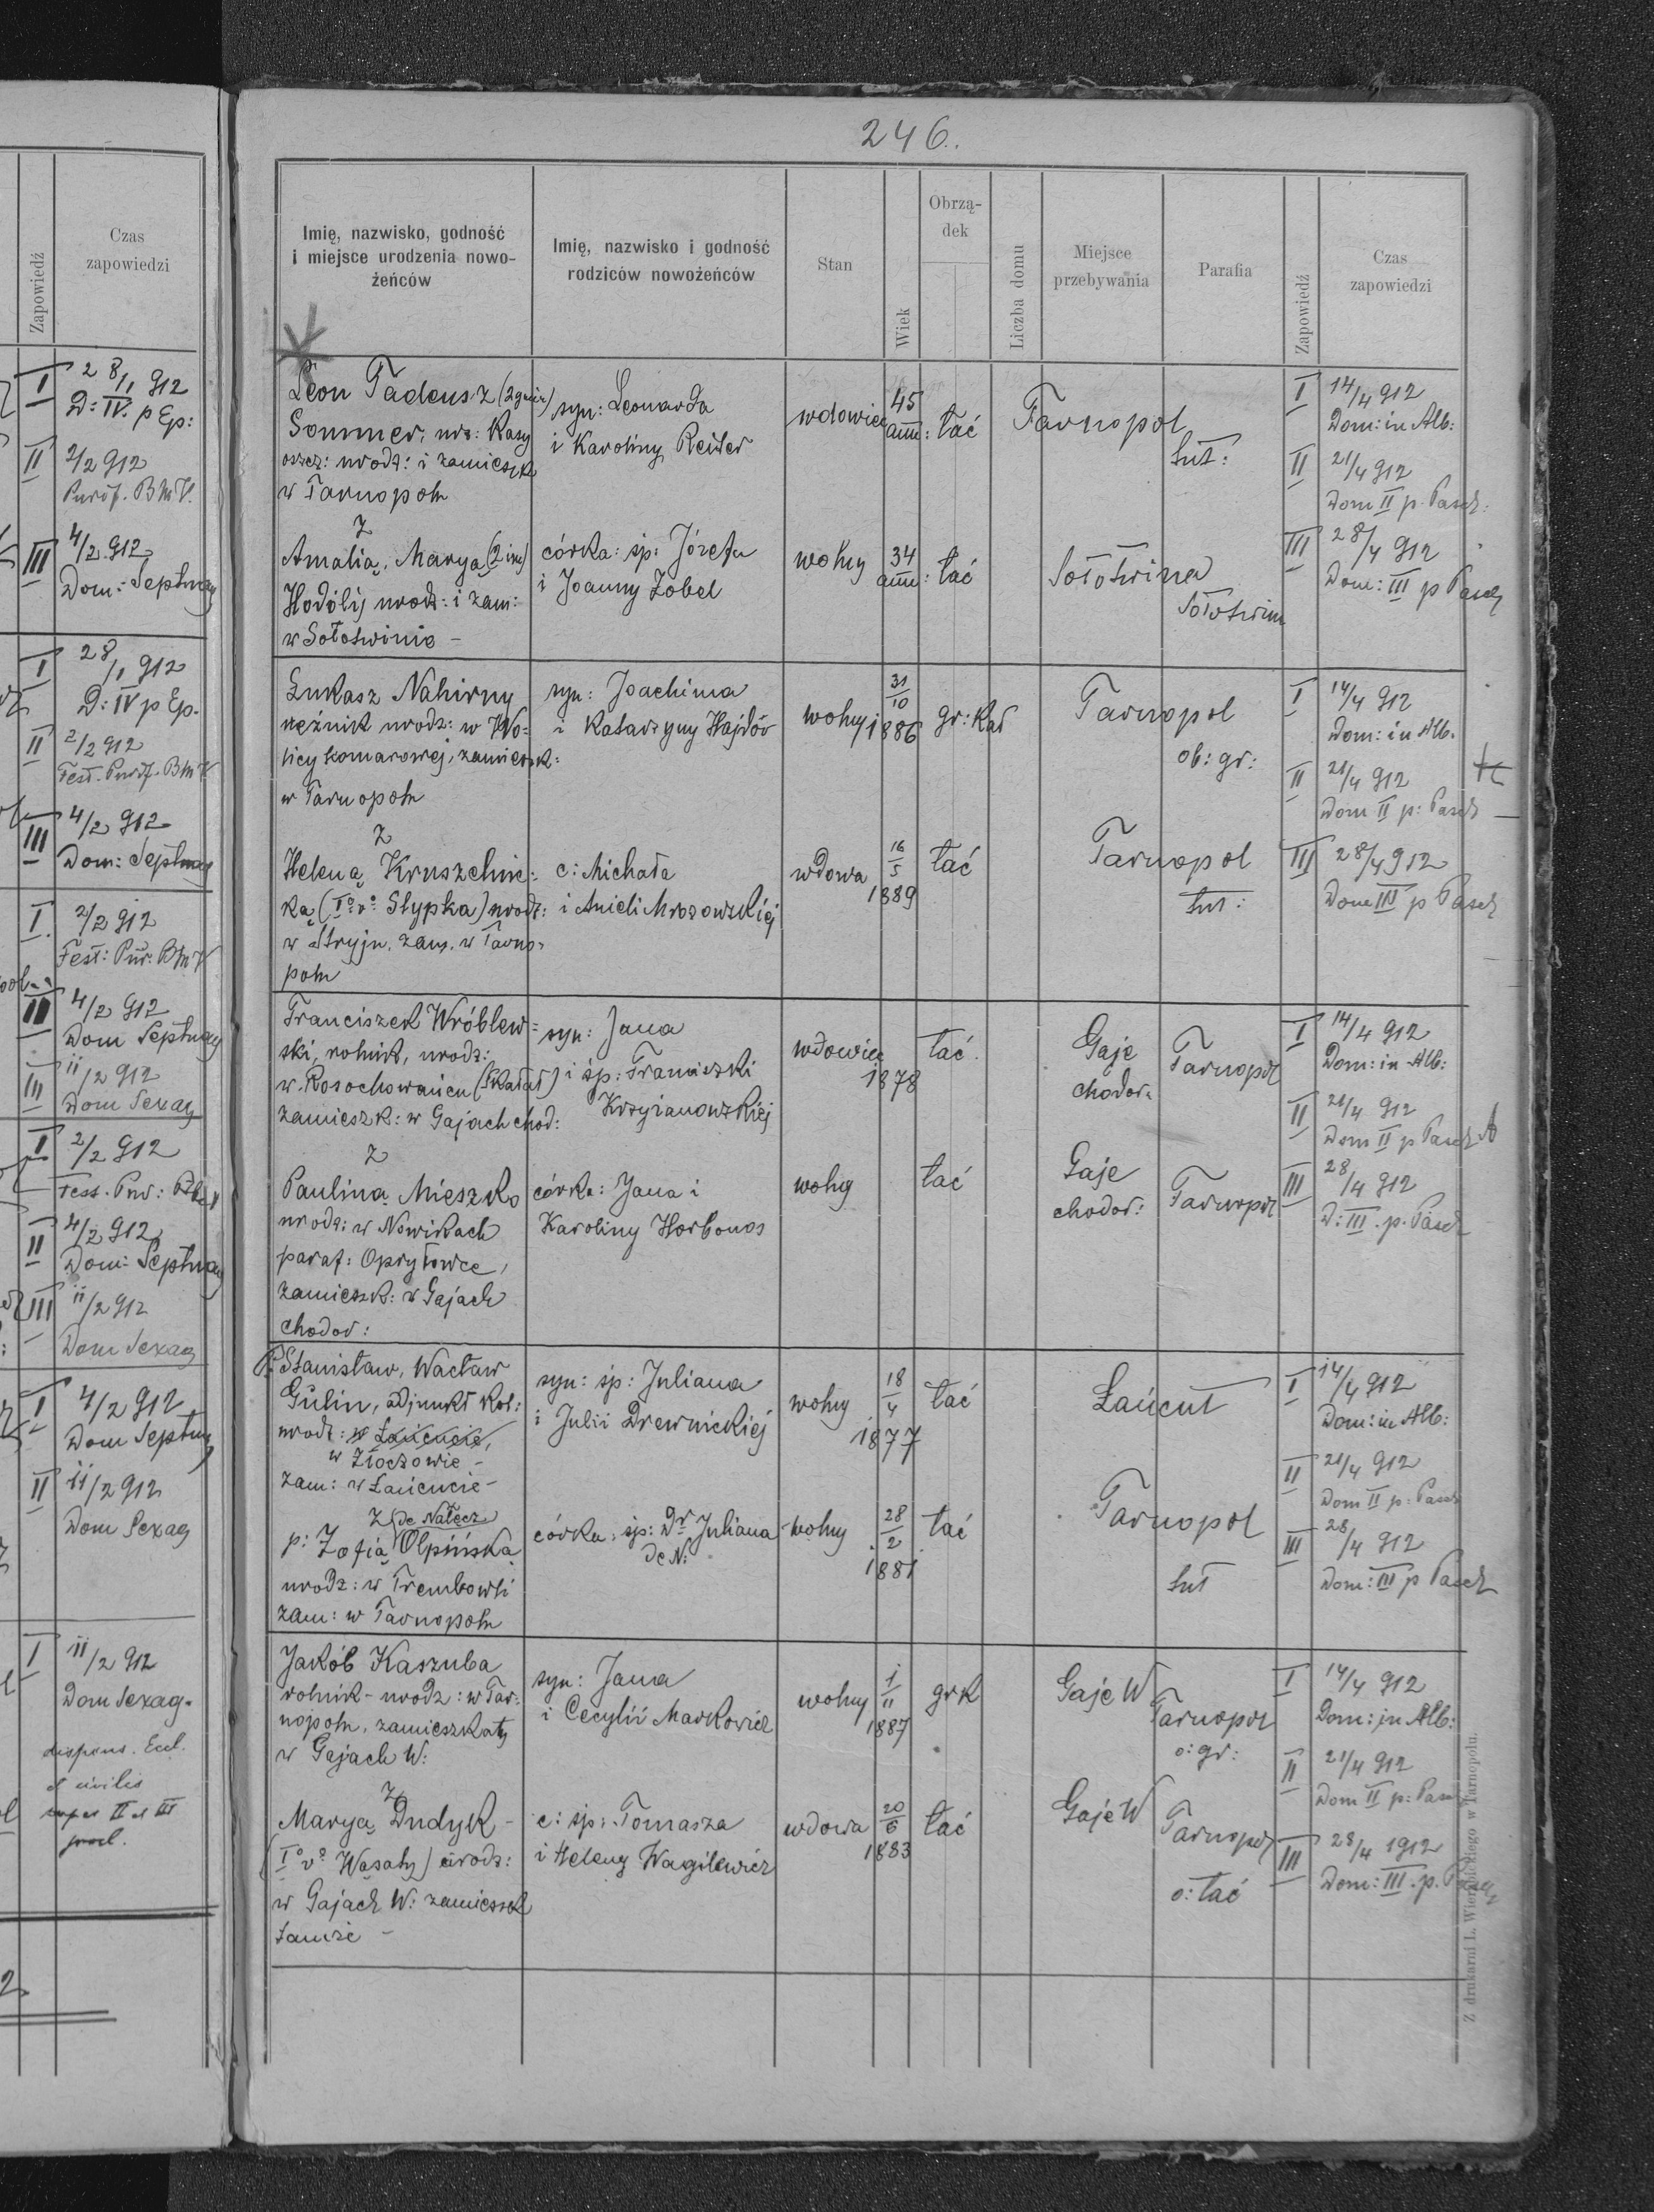 246.
Czas
zapowiedzi
Zapowiedź
I 28/1 912
D: IV. p Ep:
II 2/2 912
Purif. BMV.
III 4/2 912
Dom: Septuag
I 28/1 912
D: IV p Ep.
II 2/2 912
Fest. Purif. BMV
III 4/2 912
Dom: Septuag
I. 2/2 912
Fest: Pur. BMV
II 4/2 912
Dom Septuag
III 11/2 912
Dom Sexag
I 2/2 912
Fest. Pur:
II 4/2 912
Dom: Septuag
III 11/2 912
Dom Sexag
I 4/2 912
Dom Septuag
II 11/2 912
Dom Sexag
I 11/2 912
Dom Sexag.
dispens. Eccl.
et civilis
super II et III
procl.
Imię, nazwisko, godność
i miejsce urodzenia nowo-
żeńców
Imię, nazwisko i godność
rodziców nowożeńców
Stan
Wiek
Obrzą-
dek
Liczba domu
Miejsce
przebywania
Parafia
Zapowiedź
Czas
zapowiedzi
Leon Tadeusz (2 gim)
Sommer, urz: Kasy
oszcz: urodz: i zamieszk
w Tarnopolu
syn: Leonarda
i Karoliny Reiter
wdowiec
45
ann:
łać
Tarnopol
tut:
I 14/4 912
Dom: in Alb:
II 21/4 912
Dom II p. Pasch.
z
Amalią, Maryą (2 im)
Hodólij urodz: i zam:
w Sołotwinie –
córka: śp: Józefa
i Joanny Zobel
wolny
34
ann:
łać
Sołotwina
Sołotwina
III 28/4 912
Dom: III p Pasch
Łukasz Nahirny
rzeźnik urodz: w Wo-
licy komarowej, zamieszk:
w Tarnopolu
syn: Joachima
i Katarzyny Hajdór
wolny
31
10
1886
gr: kat
Tarnopol
ob: gr:
I 14/4 912
Dom: in Alb.
II 21/4 912
Dom II p: Pasch
z
Heleną Kruszelnic-
ką (Iº vº Słypka) urodz:
w Stryju, zam. w Tarno-
polu
c: Michała
i Anieli Mrozowskiej
wdowa
16
5
1889
łać
Tarnopol
tut:
III 28/4 912
Dom III p Pasch
Franciszek Wróblew-
ski, rolnik, urodz:
w Rosochowańcu (Skałat)
zamieszk: w Gajach chod:
syn: Jana
i śp: Franciszki
Krzyżanowskiej
wdowiec
1878
łać
Gaje
chodor:
Tarnopol
I 14/4 912
Dom: in Alb:
II 21/4 912
Dom II p Pasch
z
Pauliną Mieszko
urodz: w Nowikach
paraf: Opryłowce,
zamieszk: w Gajach
chodor:
córka: Jana i
Karoliny Horbonos
wolny
łać
Gaje
chodor:
Tarnopol
III 28/4 912
D: III. p. Pasch
P. Stanisław, Wacław
Gulin, adjunkt kol:
urodz: w Łańcucie,
w Złoczowie –
zam: w Łańcucie –
syn: śp: Juliana
i Julii Drewnickiej
wolny
18
4
1877
łać
Łańcut
I 14/4 912
Dom: in Alb:
II 21/4 912
Dom II p: Pasch
z de Nałęcz
p: Zofią Olpińską
urodz: w Trembowli
zam: w Tarnopolu
córka: śp: Dr Juliana
de N:
wolny
28
2
1881
łać
Tarnopol
tut
III 28/4 912
Dom: III p Pasch
Jakób Kaszuba
rolnik – urodz: w Tar-
nopolu, zamieszkały
w Gajach W:
syn: Jana
i Cecylii Markowicz
wolny
1
11
1887
grk
Gaje W
Tarnopol
o: gr:
I 14/4 912
Dom: in Alb:
II 21/4 912
Dom II p: Pasch
z
Maryą Dudyk –
(Iº vº Wąsaty) urodz:
w Gajach W: zamieszk
tamże –
c: śp: Tomasza
i Heleny Wagilewicz
wdowa
20
6
1883
łać
Gaje W
Tarnopol
o: łać
III 28/4 1912
Dom: III. p. Pasch
Z drukarni L. Wierzbickiego w Tarnopolu.